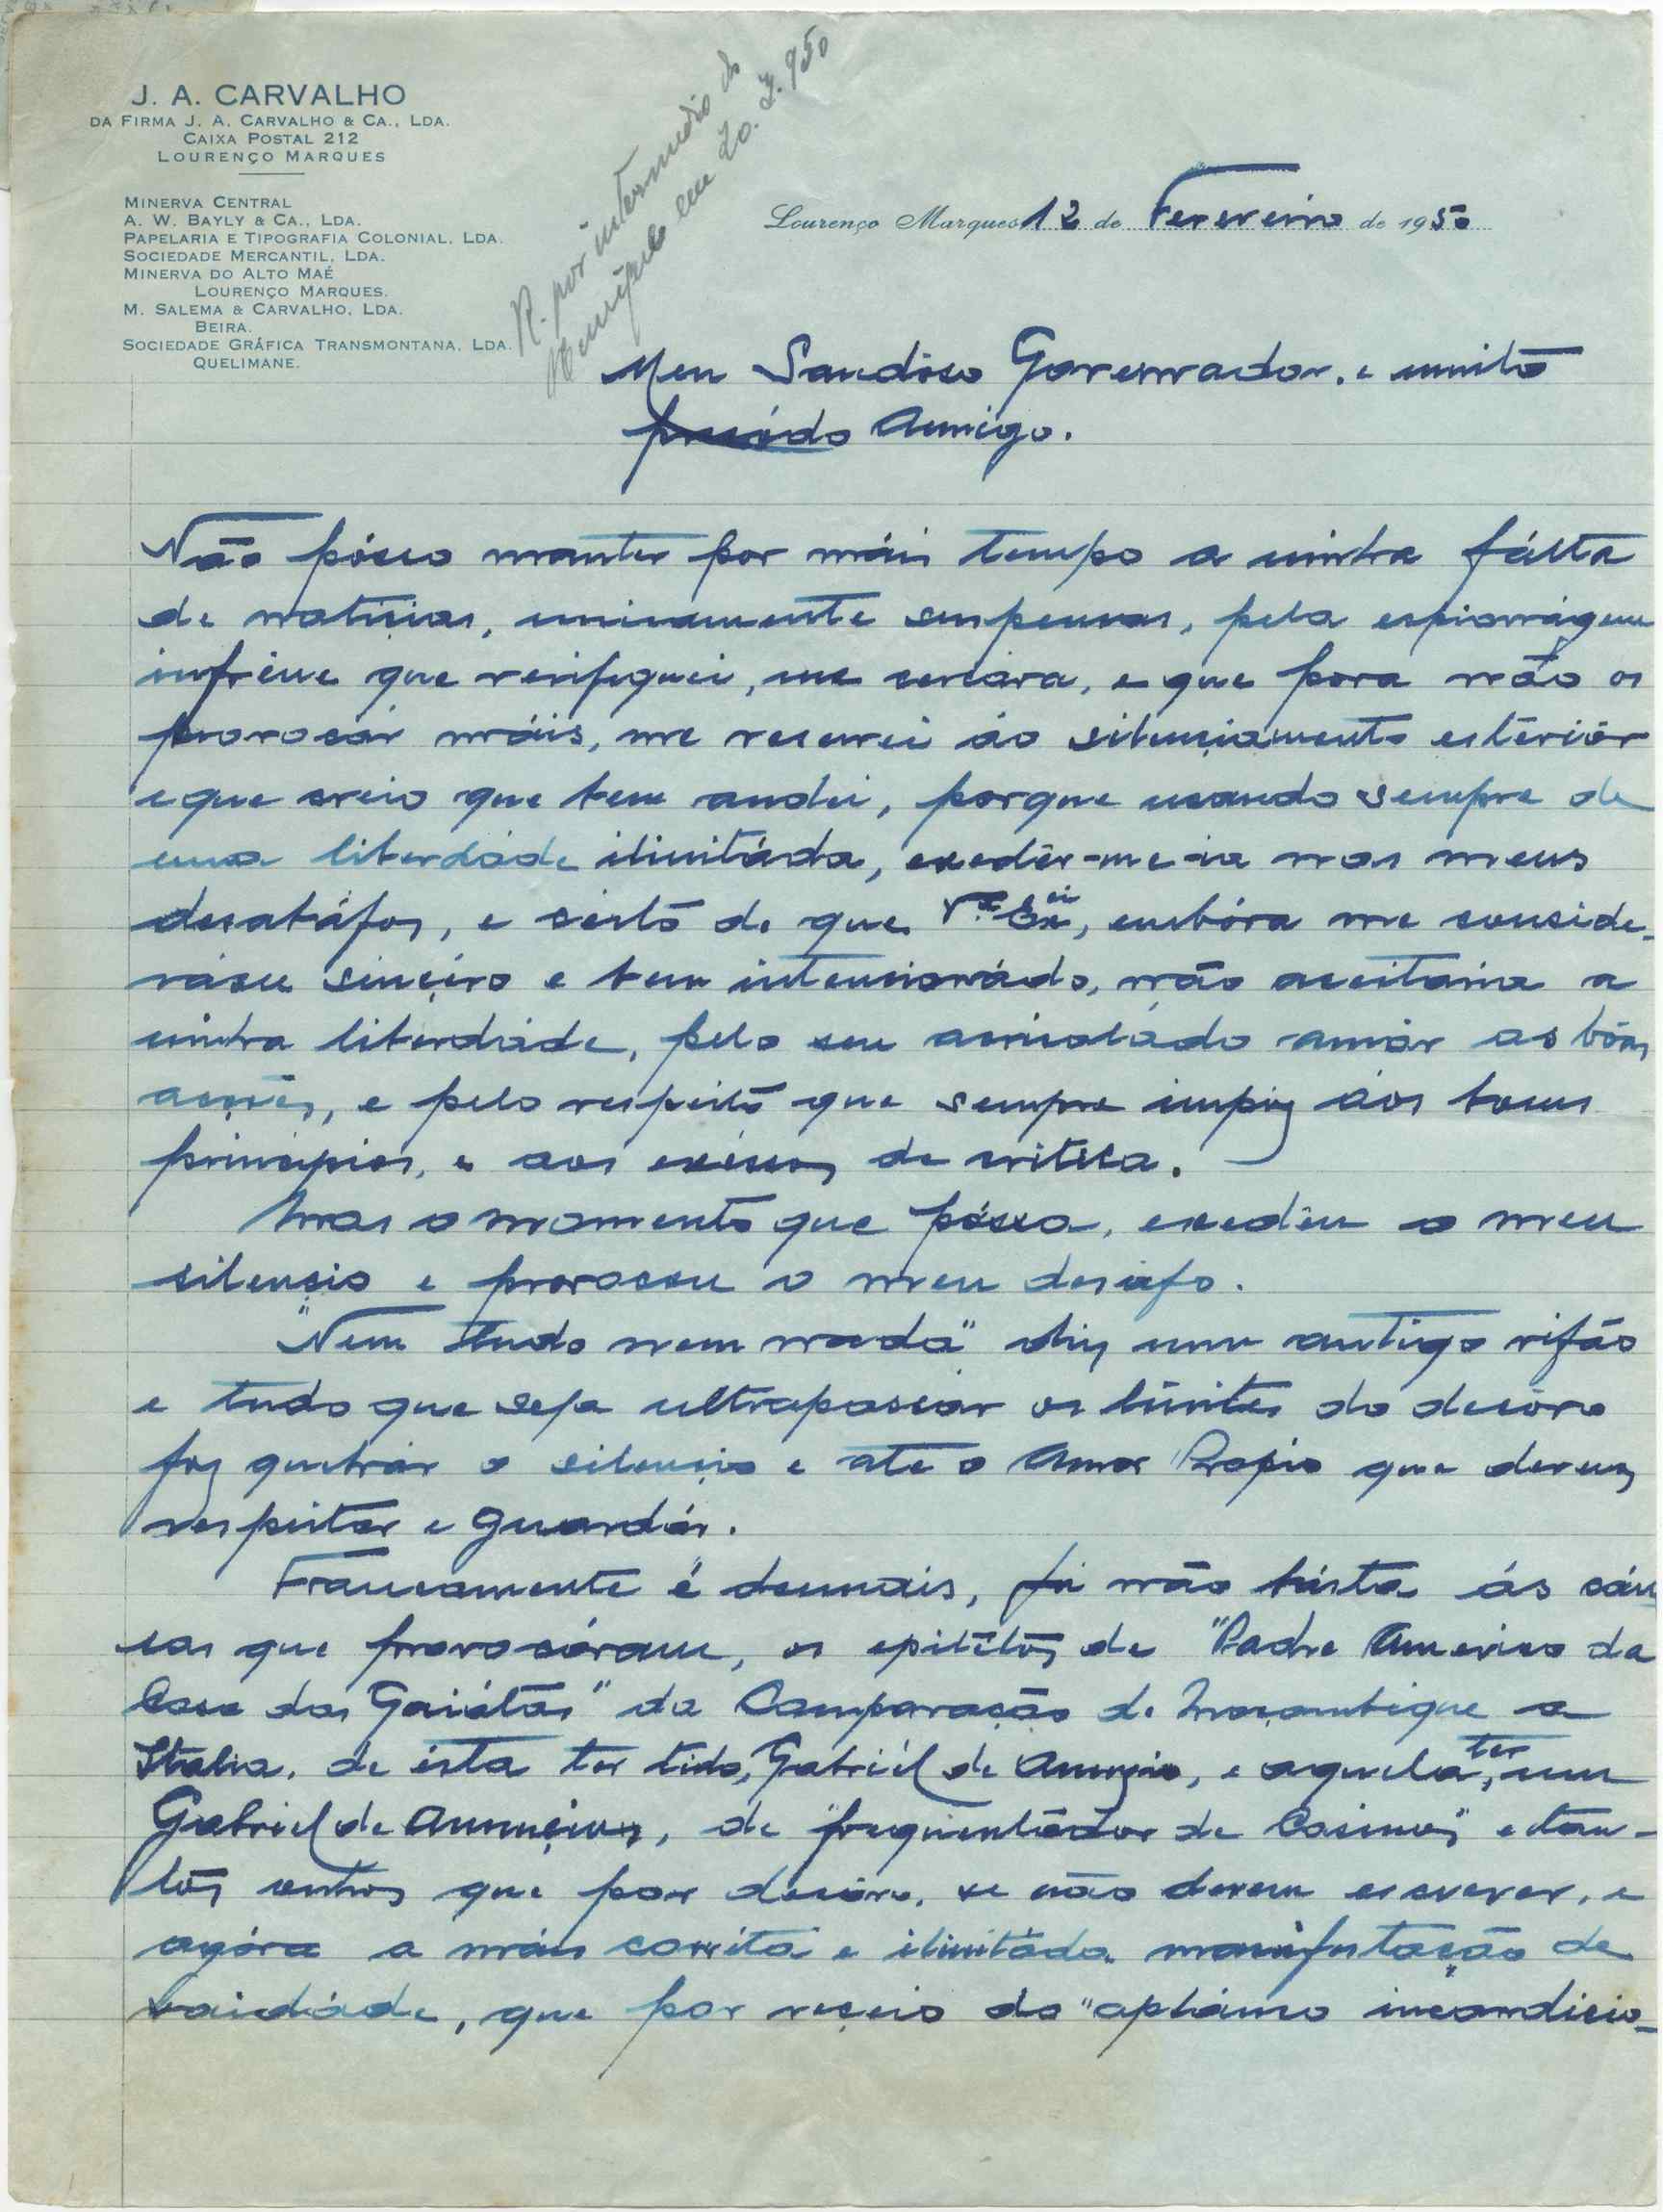 J. A. CARVALHO
DA FIRMA J. A. CARVALHO & CA., LDA.
CAIXA POSTAL 212
LOURENÇO MARQUES
MINERVA CENTRAL
A. W. BAYLY & CA., LDA.
PAPELARIA E TIPOGRAFIA COLONIAL, LDA.
SOCIEDADE MERCANTIL, LDA.
MINERVA DO ALTO MAÉ
LOURENÇO MARQUES.
M. SALEMA & CARVALHO, LDA.
BEIRA.
SOCIEDADE GRÁFICA TRANSMONTANA, LDA.
QUELIMANE.
R. por intermedio do
em 20.7.950
Lourenço Marques 12 de Fevereiro de 1950
Meu Saudôso Governador, e muito
Amigo.
Não pósso manter por máis tempo a minha fálta
de noticias, unicamente suspensas, pela espionágem
infrene que verifiquei, me cercára, e que para não os
provocár máis, me reservei áo silenciamento estèriór
e que creio que bem andei, porque usando sempre de
uma liberdáde ilimitáda, exedêr-me-ia nos meus
desabáfos, e cérto de que V.ª Exᶜⁱᵃ, embóra me conside-
rásse sincéro e bem intencionádo, não aceitaria a
minha liberdáde, pelo seu acrisoládo amôr as bôas
acções, e pelo respeito que sempre impoz áos bons
principios, e aos exéssos de critica.
Mas o momento que pássa, exedeu o meu
silencio e provocou o meu desafo.
"Nem tudo nem nada" diz um antigo rifão
e tudo que seja ultrapassár os limites do decôro
faz quebrár o silencio e até o Amor Propio que devemos
respeitar e guardár.
Francamente é demais, já não básta ás cáu-
sas que provocáram, os epitétos de "Padre Americo da
Casa dos Gaiátos" da Comparação de Moçambique a
Italia, de ésta ter tido, Gabriél de Anunzio, e aquela, ter um
Gabriel de Anuncios, de "frequentadôr de Casinos" e tan-
tos outros que por decôro, se não devem escrever, e
agóra a máis e ilimitáda manifestação de
vaidáde, que por receio do "apláuso incondicio-